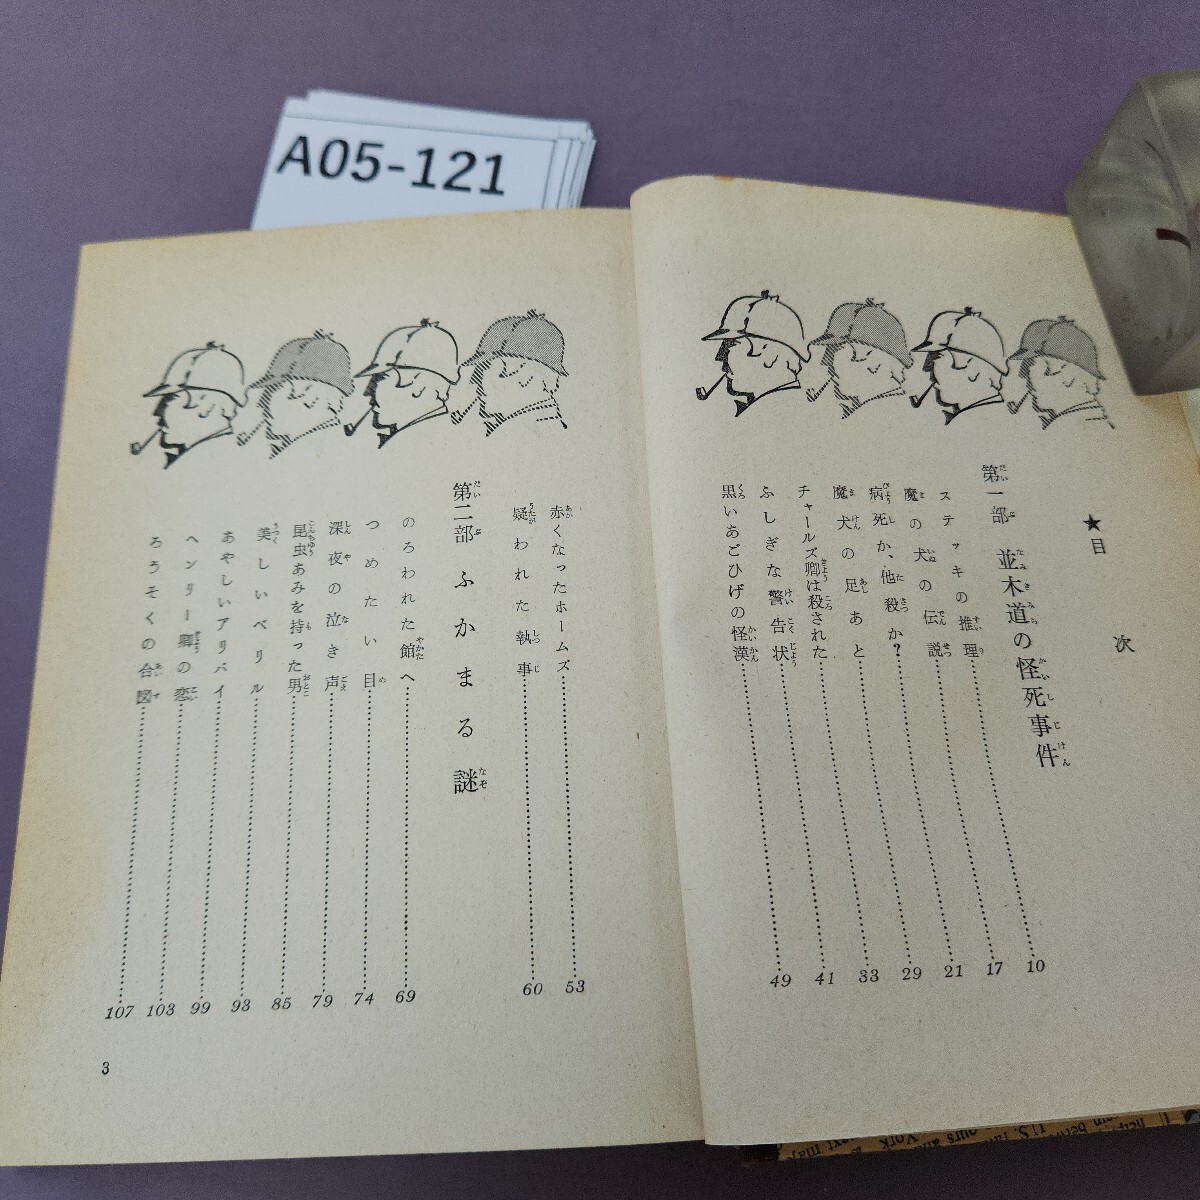 A05-121
★目次
第一部 並木道の怪死事件
ステッキの推理……10
魔の犬の伝説……17
病死か、他殺か?……21
魔犬の足あと……29
チャールズ卿は殺された……33
ふしぎな警告状……41
黒いあごひげの怪漢……49
赤くなったホームズ……53
疑われた執事……60
第二部 ふかまる謎
のろわれた館へ……69
つめたい目……74
深夜の泣き声……79
昆虫あみを持った男……85
美しいベリル……93
あやしいアリバイ……99
ヘンリー卿の恋……103
ろうそくの合図……107
3